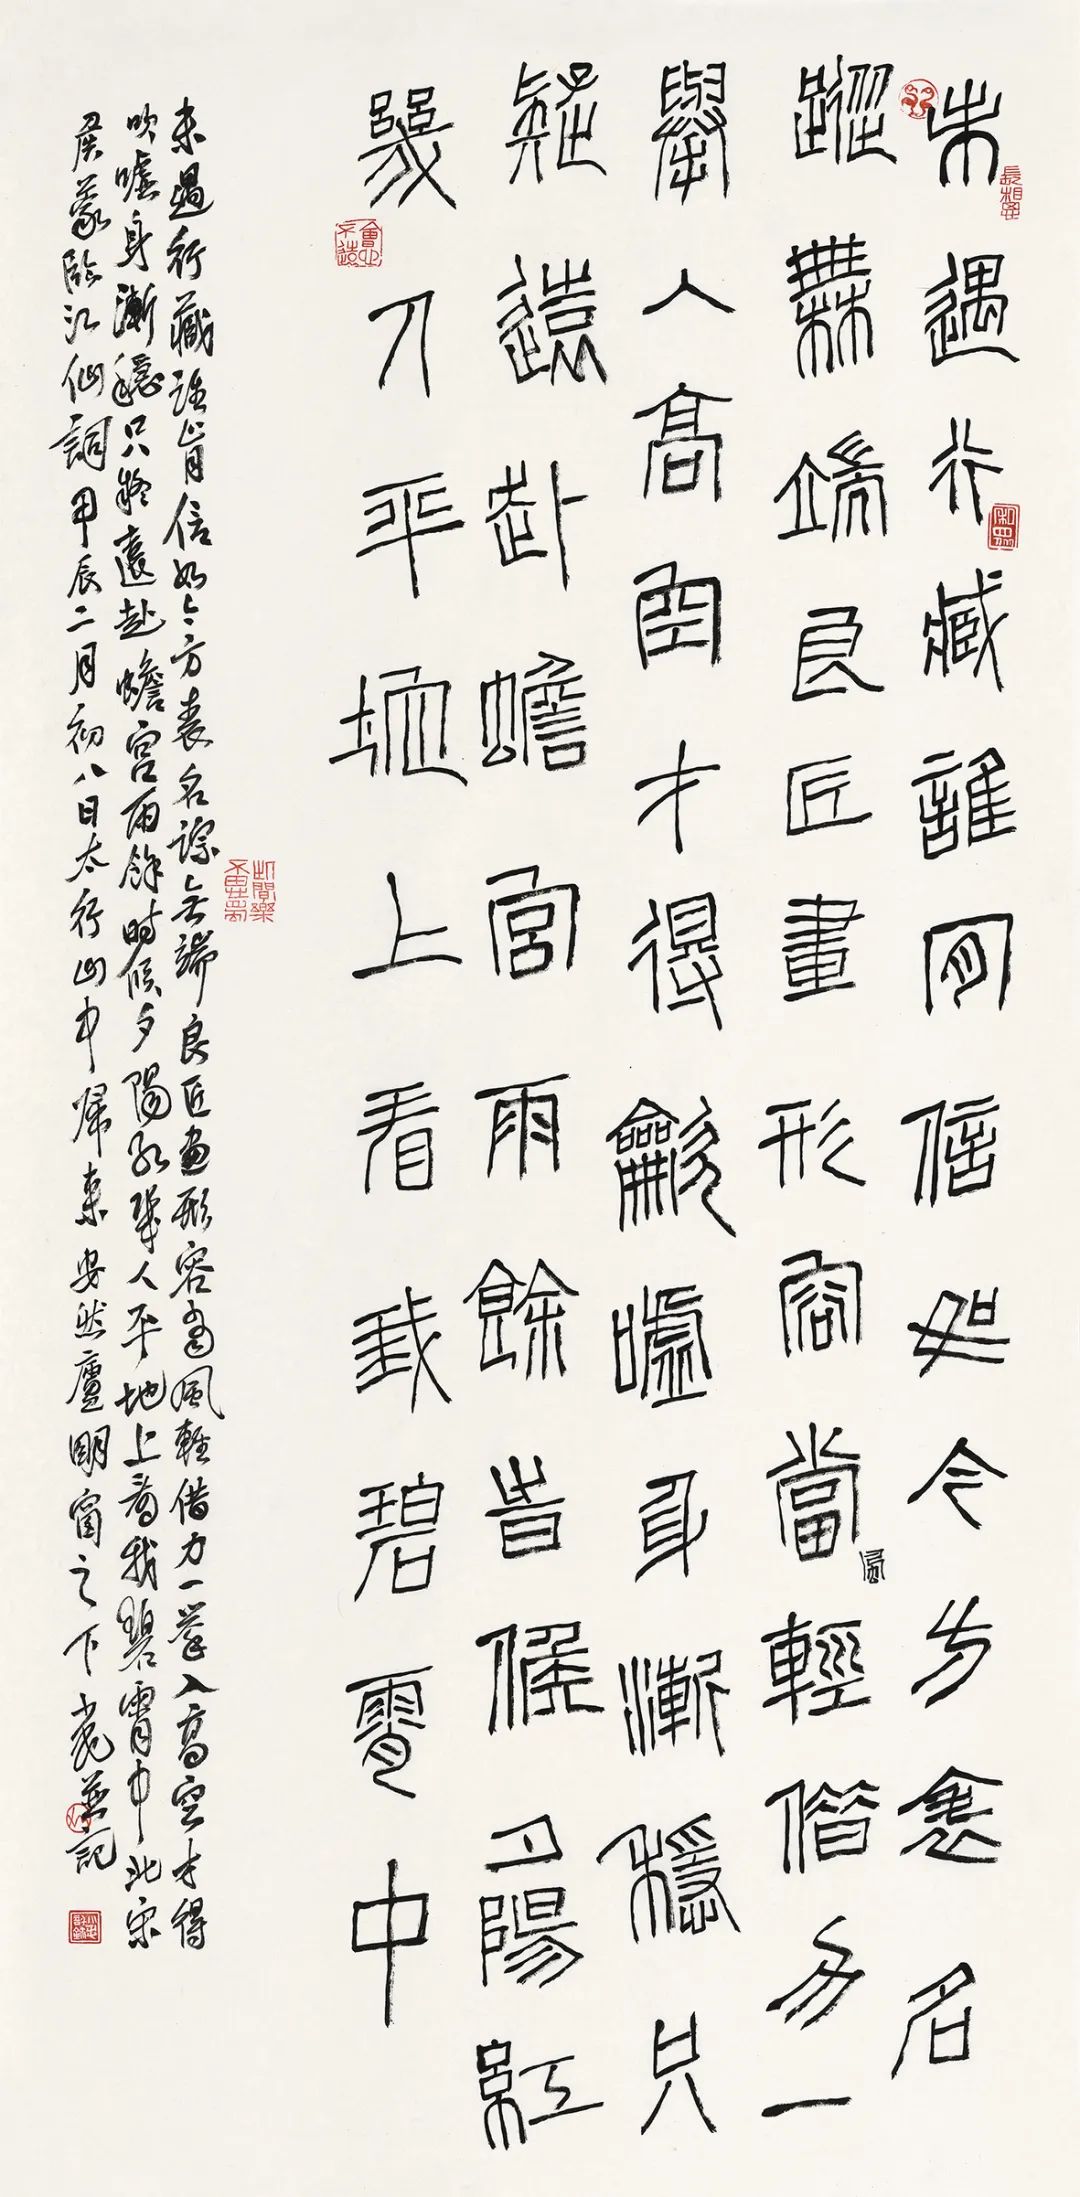 未遇行藏誰肯信如今方表名
蹤無端良匠畫形容當風輕借力一
舉入高空才得龡嘘身漸穩只
疑遠赴蟾宮雨餘時候夕陽紅
幾人平地上看我碧霄中
未遇行藏誰肯信如今方表名踪無端良匠畫形容當風輕借力一举入高空才得
吹嘘身漸穩只疑遠赴蟾宮雨餘時候夕陽紅幾人平地上看我碧霄中北宋
侯蒙臨江仙詞甲辰二月初八日太行山中歸來安然廬明窗之下並記